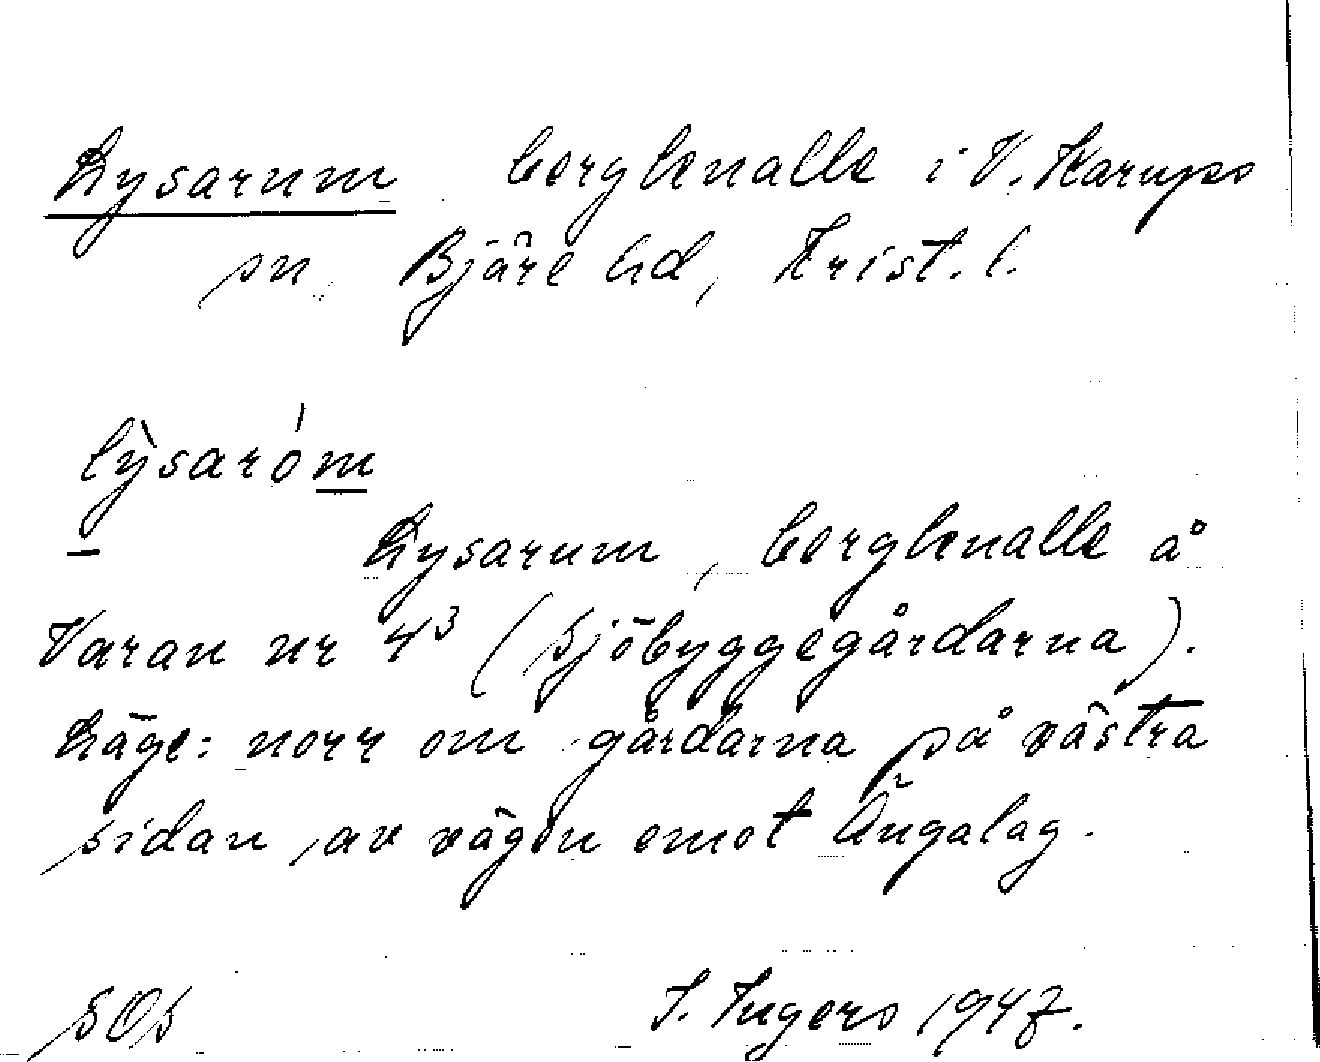 Lysarum bergknalle i V. Karups
sn, Bjäre hd, Krist. l.
lỳsaróm
Lysarum, bergknalle å
Varan nr 4³ (Sjöbyggegårdarna).
Läge: norr om gårdarna på västra
sidan av vägen emot Ängalag.
SOS I. Ingers 1947.